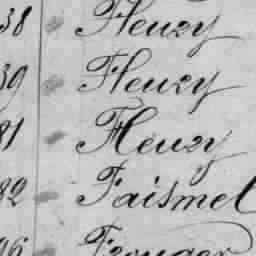 38 Fleury
39 Fleury
81 Fleury
82 Faismel